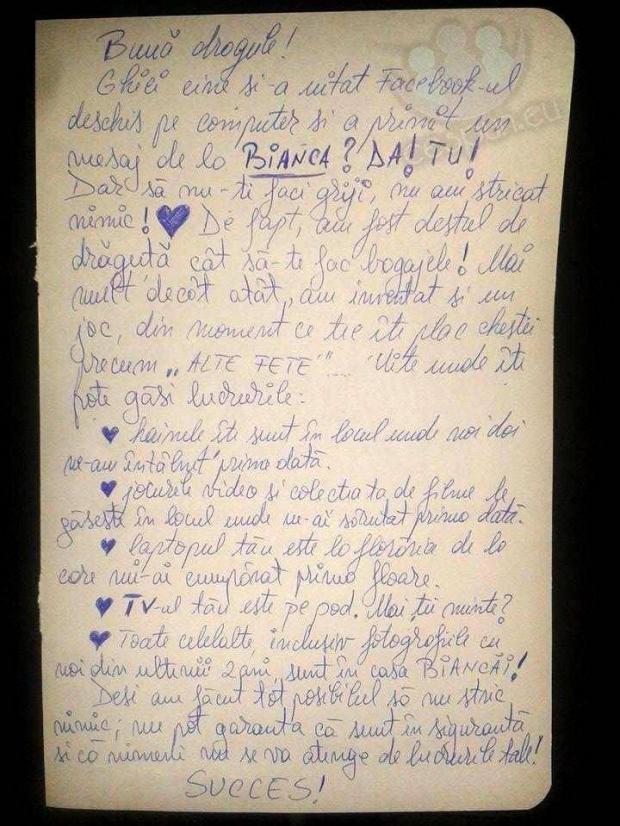 Bună dragule!
Ghici cine si-a uitat Facebook-ul
deschis pe computer si a primit un
mesaj de la BIANCA? DA! TU!
Dar să nu-ti faci griji, nu am stricat
nimic! De fapt, am fost destul de
drăgută cât să-te fac bagajele! Mai
mult decât atât, am inventat si un
joc, din moment ce tie îti plac chestii
precum „ALTE FETE"... Uite unde îti
pote găsi lucrurile:
hainele îti sunt în locul unde noi doi
ne-am întâlnit prima dată.
jocurile video si colectia ta de filme le
găsesti în locul unde ne-ai sărutat prima dată.
laptopul tău este la florăria de la
care mi-ai cumpărat prima floare.
TV-ul tău este pe pod. Mai tii minte?
Toate celelalte, inclusiv fotografiile cu
noi din ultimii 2 ani, sunt în casa BIANCĂI!
Desi am făcut tot posibilul să nu stric
nimic, nu pot garanta că sunt în sigurantă
si că nimeni nu se va atinge de lucrurile tale!
SUCCES!